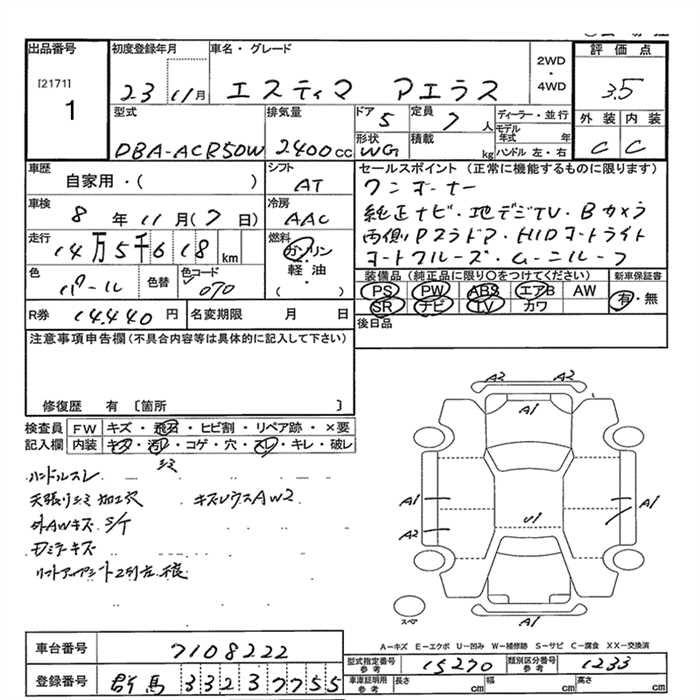 出品番号 初度登録年月 車名・グレード 評価点
[2171] 1
23 11月 エスティマ アエラス 2WD・4WD 3.5
型式 排気量 ドア 5 定員 7人 ディーラー・並行 外装 内装
DBA-ACR50W 2400cc 形状 WG 積載 kg モデル年式 年 ハンドル 左・右 C C
車歴 自家用・( ) シフト AT
セールスポイント (正常に機能するものに限ります)
ワンオーナー
車検 8年11月(7日) 冷房 AAC
純正ナビ・地デジTV・Bカメラ
走行 14万5千618km 燃料 ガソリン 軽油 ( )
両側Pスラドア・HIDオートライト
オートクルーズ・ムーンルーフ
色 パール 色替 色コード 070
装備品 (純正品に限り○をつけてください) 新車保証書
PS PW ABS エアB AW 有・無
SR ナビ TV カワ
R券 14,440円 名変期限 月 日
後日品
注意事項申告欄(不具合内容等は具体的に記入して下さい)
修復歴 有 〔箇所 〕
検査員 FW キズ・飛石・ヒビ割・リペア跡・×要
記入欄 内装 キズ・汚レ・コゲ・穴・スレ・キレ・破レ
シミ
ハンドルスレ
天張りシミ 加工穴 キズ
外AWキズ S/T
Dミラーキズ
リフトアップシート2列左
A2 A2
A1
A1 A1
A2
U1
A1
スペア
A-キズ E-エクボ U-凹み W-補修跡 S-サビ C-腐食 XX-交換済
車台番号 7108222
型式指定番号 参考 15270 類別区分番号 参考 1233
登録番号 群馬 332 3 7755
車庫証明用 参考 長さ cm 幅 cm 高さ cm